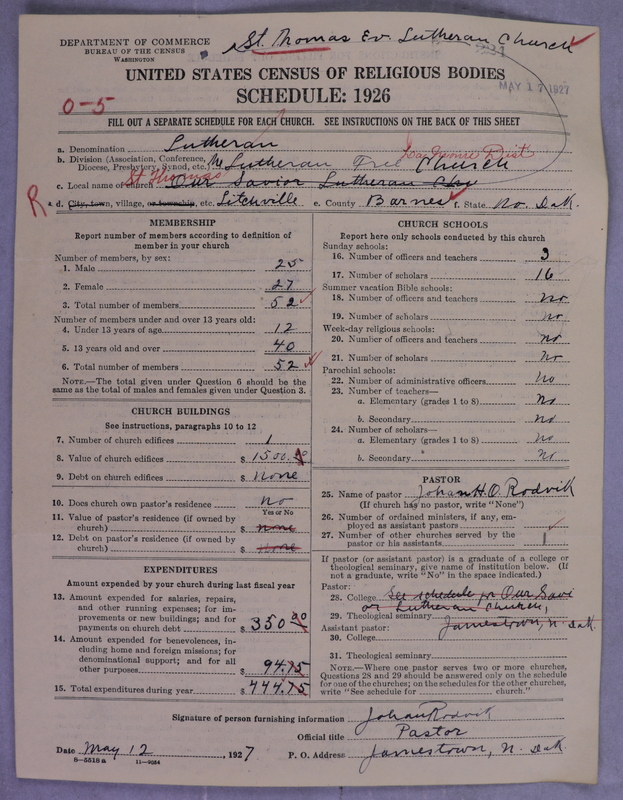 DEPARTMENT OF COMMERCE
BUREAU OF THE CENSUS
WASHINGTON
St. Thomas Ev. Lutheran Church
MAY 17 1927
UNITED STATES CENSUS OF RELIGIOUS BODIES
SCHEDULE: 1926
0-5
FILL OUT A SEPARATE SCHEDULE FOR EACH CHURCH. SEE INSTRUCTIONS ON THE BACK OF THIS SHEET
a. Denomination Lutheran
b. Division (Association, Conference, Diocese, Presbytery, Synod, etc.) The Lutheran Free Church
St Thomas
c. Local name of church Our Savior Lutheran Chu
R
d. City, town, village, or township, etc. Litchville e. County Barnes f. State No. Dak.
MEMBERSHIP
Report number of members according to definition of member in your church
Number of members, by sex:
1. Male 25
2. Female 27
3. Total number of members 52
Number of members under and over 13 years old:
4. Under 13 years of age 12
5. 13 years old and over 40
6. Total number of members 52
NOTE.—The total given under Question 6 should be the same as the total of males and females given under Question 3.
CHURCH BUILDINGS
See instructions, paragraphs 10 to 12
7. Number of church edifices 1
8. Value of church edifices $ 1500.00
9. Debt on church edifices $ none
10. Does church own pastor's residence no
Yes or No
11. Value of pastor's residence (if owned by church) $ none
12. Debt on pastor's residence (if owned by church) $ none
EXPENDITURES
Amount expended by your church during last fiscal year
13. Amount expended for salaries, repairs, and other running expenses; for improvements or new buildings; and for payments on church debt $ 350 00
14. Amount expended for benevolences, including home and foreign missions; for denominational support; and for all other purposes $ 94.75
15. Total expenditures during year $ 444.75
CHURCH SCHOOLS
Report here only schools conducted by this church
Sunday schools:
16. Number of officers and teachers 3
17. Number of scholars 16
Summer vacation Bible schools:
18. Number of officers and teachers no
19. Number of scholars no
Week-day religious schools:
20. Number of officers and teachers no
21. Number of scholars no
Parochial schools:
22. Number of administrative officers no
23. Number of teachers—
a. Elementary (grades 1 to 8) no
b. Secondary no
24. Number of scholars—
a. Elementary (grades 1 to 8) no
b. Secondary no
PASTOR
25. Name of pastor Johan H.O. Rodvik
(If church has no pastor, write "None")
26. Number of ordained ministers, if any, employed as assistant pastors
27. Number of other churches served by the pastor or his assistants 1
If pastor (or assistant pastor) is a graduate of a college or theological seminary, give name of institution below. (If not a graduate, write "No" in the space indicated.)
Pastor:
28. College See schedule for Our Savi
29. Theological seminary or Lutheran Church,
Assistant pastor: Jamestown, N. Dak.
30. College
31. Theological seminary
NOTE.—Where one pastor serves two or more churches, Questions 28 and 29 should be answered only on the schedule for one of the churches; on the schedules for the other churches, write "See schedule for church."
Signature of person furnishing information Johan Rodvik
Official title Pastor
Date May 12, 1927 P. O. Address Jamestown, N. Dak.
8-5518 a 11-9054